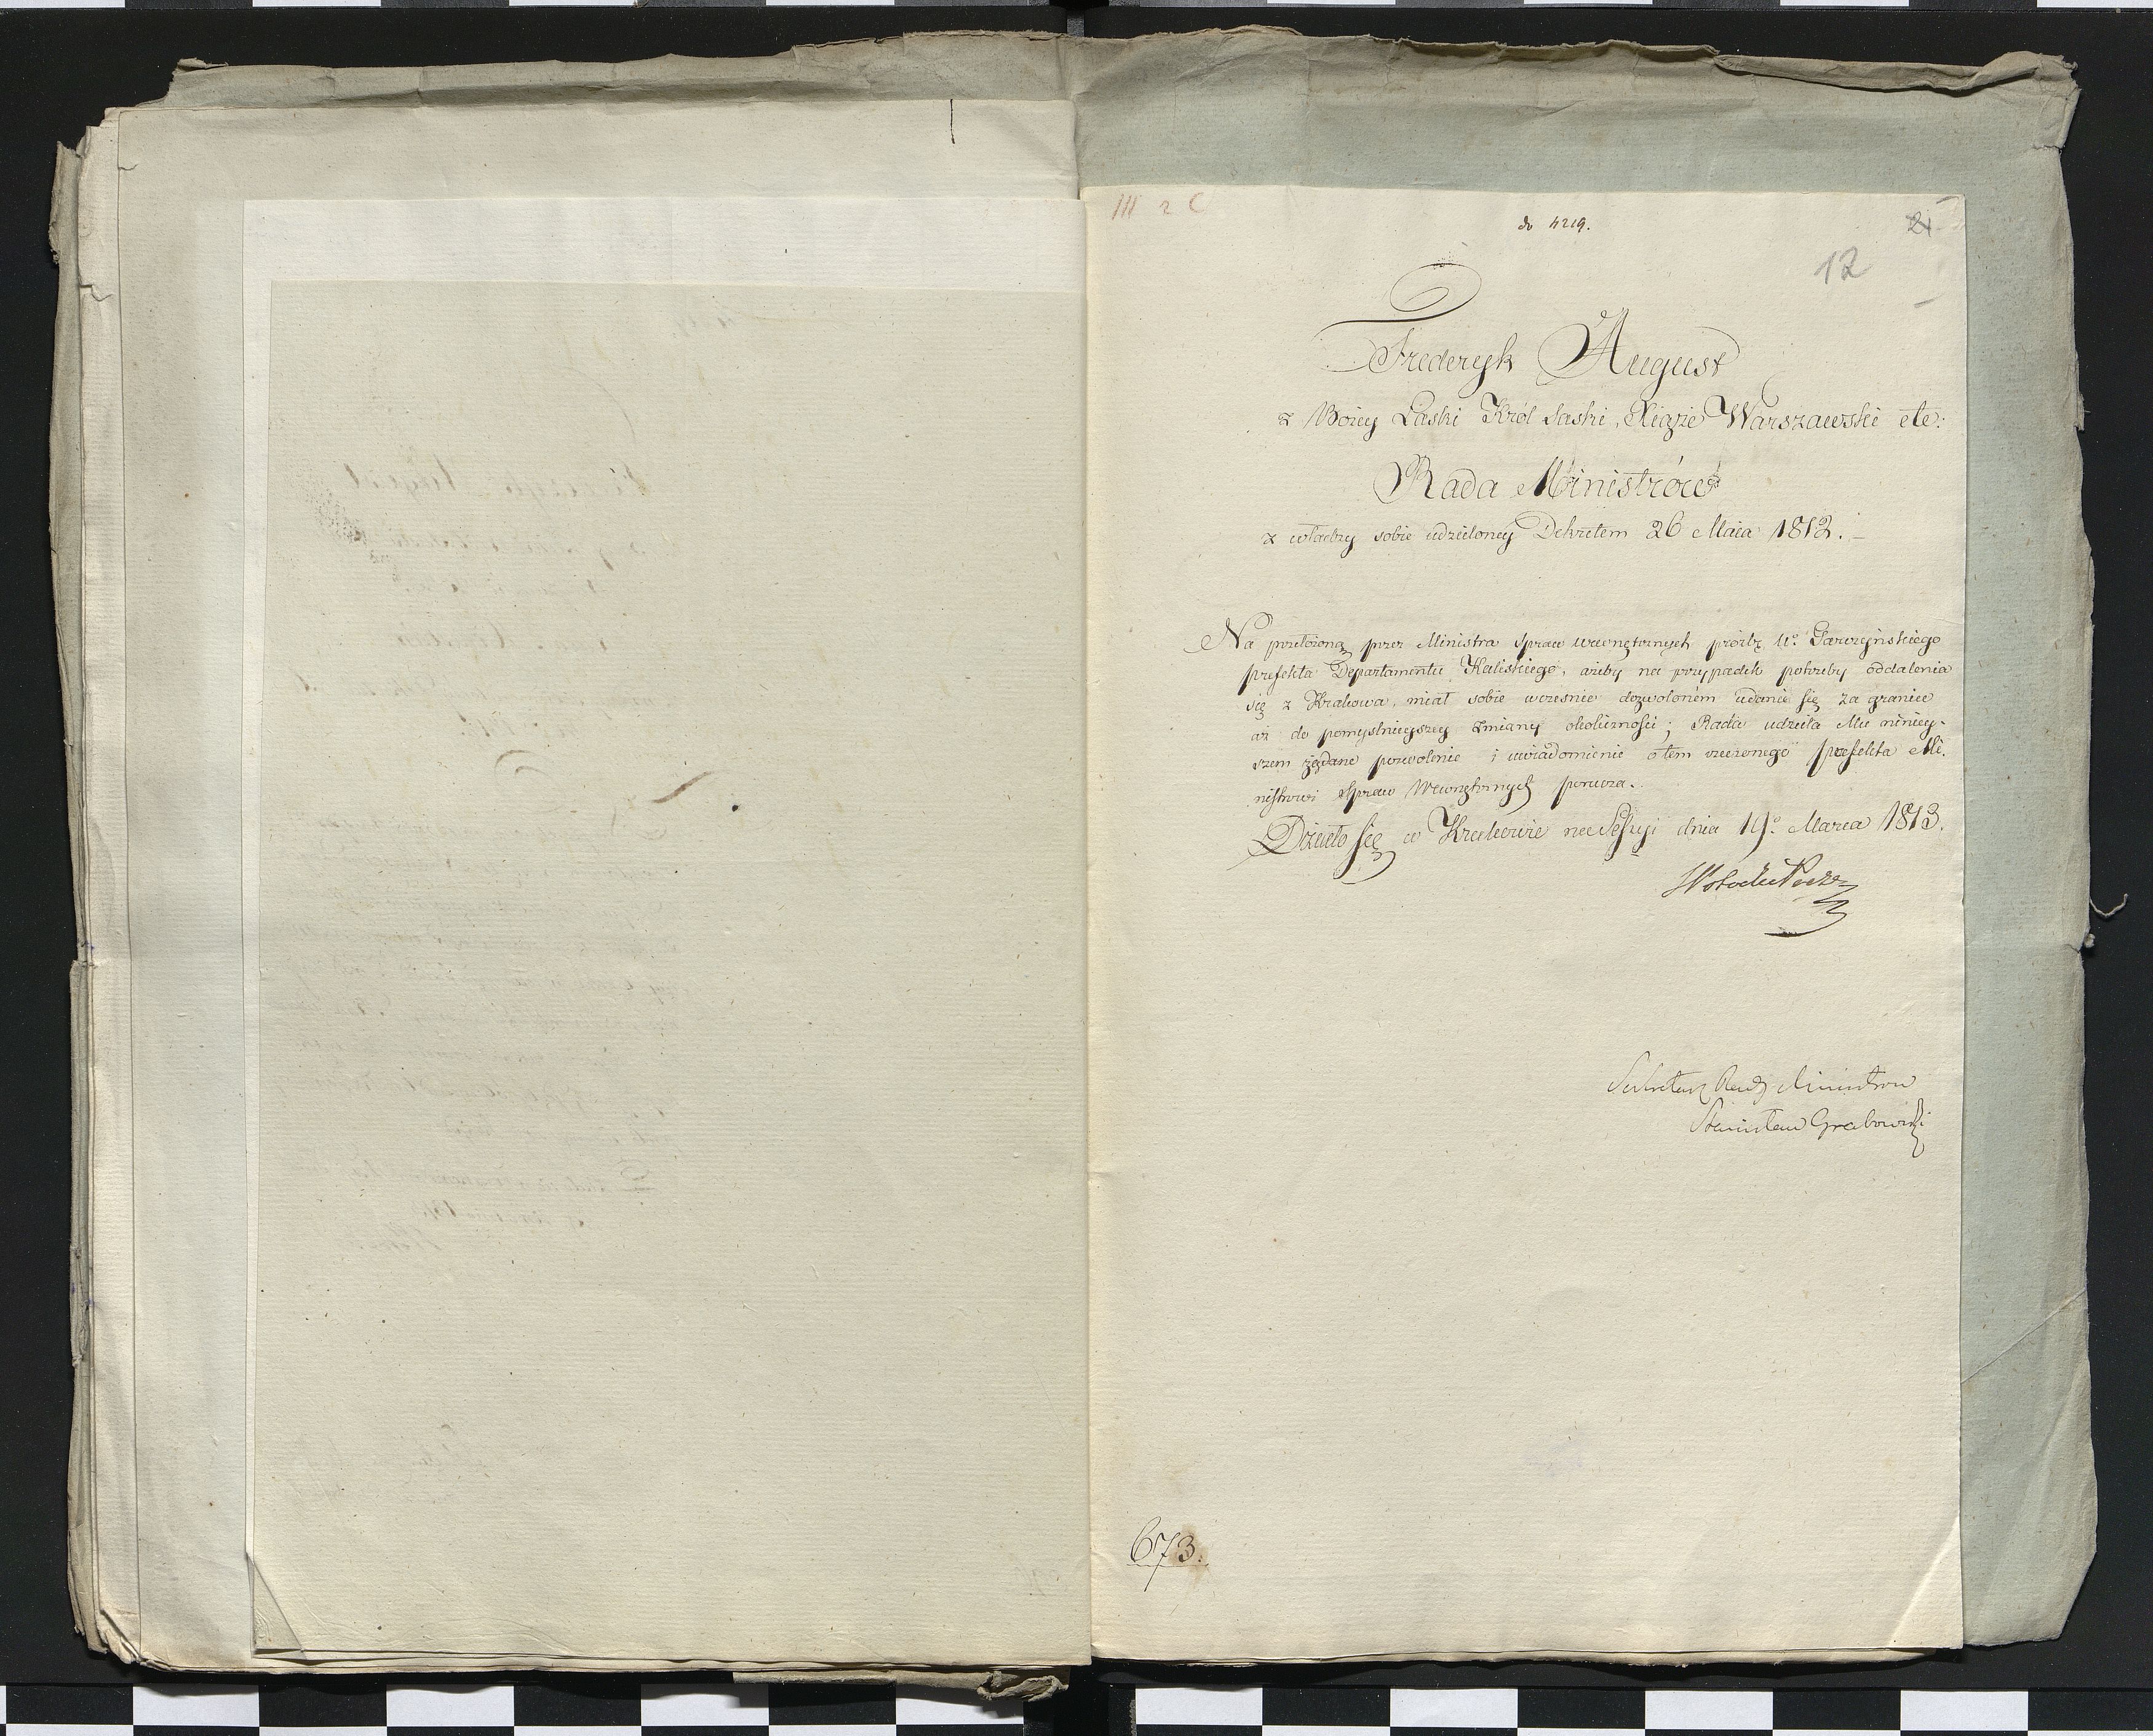 III 2 C
do 4219.
21
12
Frederyk August
z Bożey Łaski Król Saski, Xiąże Warszawski etc:
Rada Ministrów
z władzy sobie udzieloney Dekretem 26 Maia 1812. –
Na przełożoną przez Ministra Spraw wewnętrznych prozbę Ur. Garczyńskiego
prefekta Departamentu Kaliskiego, ażeby na przypadek potrzeby oddalenia
się z Krakowa, miał sobie wcześnie dozwolonem udanie się za granice
aż do pomyślnieyszey zmiany okoliczności; Rada udziela Mu niniey-
szem żądane pozwolenie i uwiadomienie o tem rzeczonego prefekta Mi-
nistrowi Spraw Wewnętrznych porucza.
Działo się w Krakowie na Sessyi dnia 19º Marca 1813.
Sekretarz Rady Ministrow
Stanisław Grabowski
673.